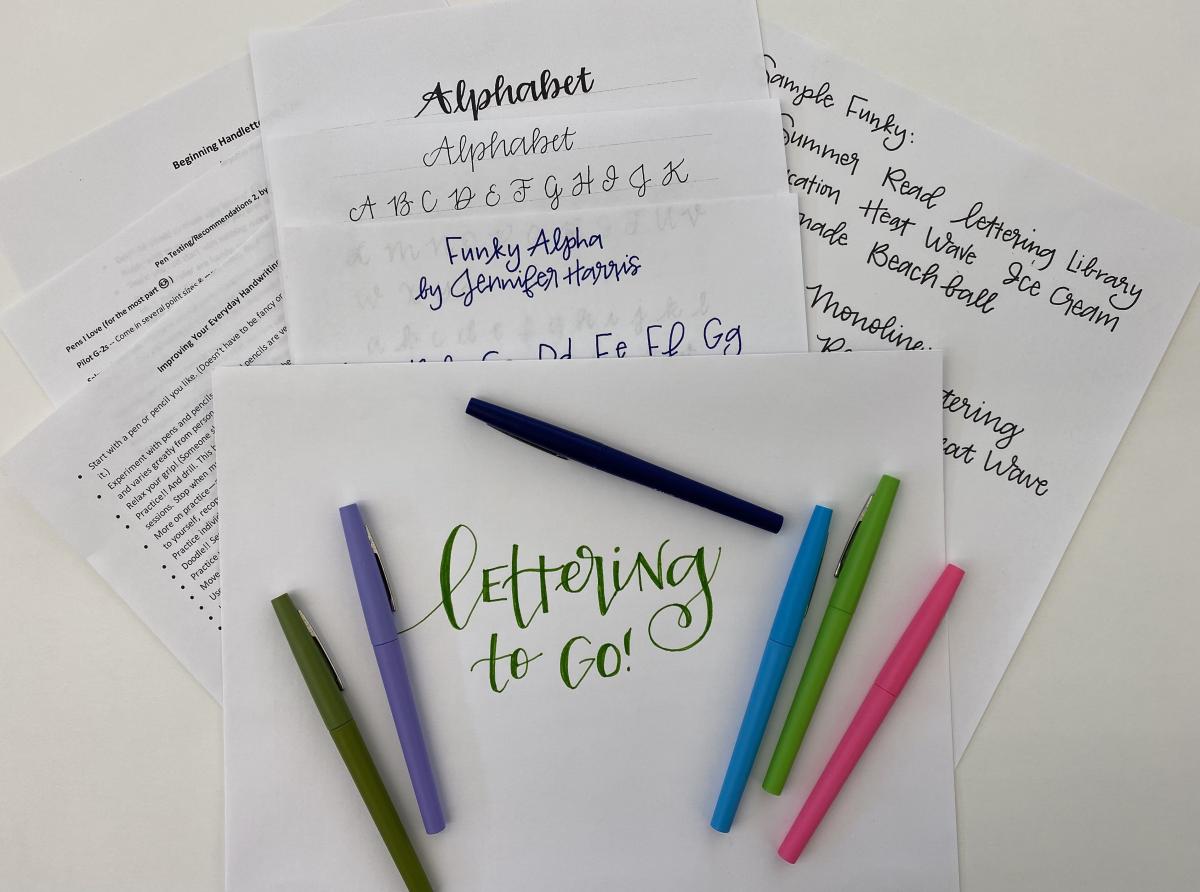 Beginning Handlette
Pen Testing/Recommendations 2, by
Pens I Love (for the most part 😊)
Pilot G-2s – Come in several point sizes &
Improving Your Everyday Handwriting
Start with a pen or pencil you like. (Doesn't have to be fancy or
it.)
Experiment with pens and pencils
pencils are ve
and varies greatly from person
Relax your grip! (Someone
Practice!! And drill. This
sessions. Stop when
More on practice—
to yourself, recop
Practice indivi
Doodle!! Se
Practice
Move
Use
Alphabet
Alphabet
A B C D E F G H I J K
Funky Alpha
by Jennifer Harris
Dd Ee Ff Gg
Sample Funky:
Summer Read lettering Library
cation Heat Wave Ice Cream
made Beach ball
Monoline:
tering
eat Wave
lettering
to GO!